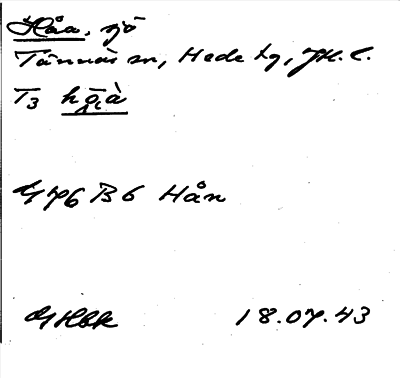 Håa, sjö
Tännäs sn, Hede tg, JH. l.
T3 hō̜ià
G 76 B 6 Hån
GHbk 18.07.43